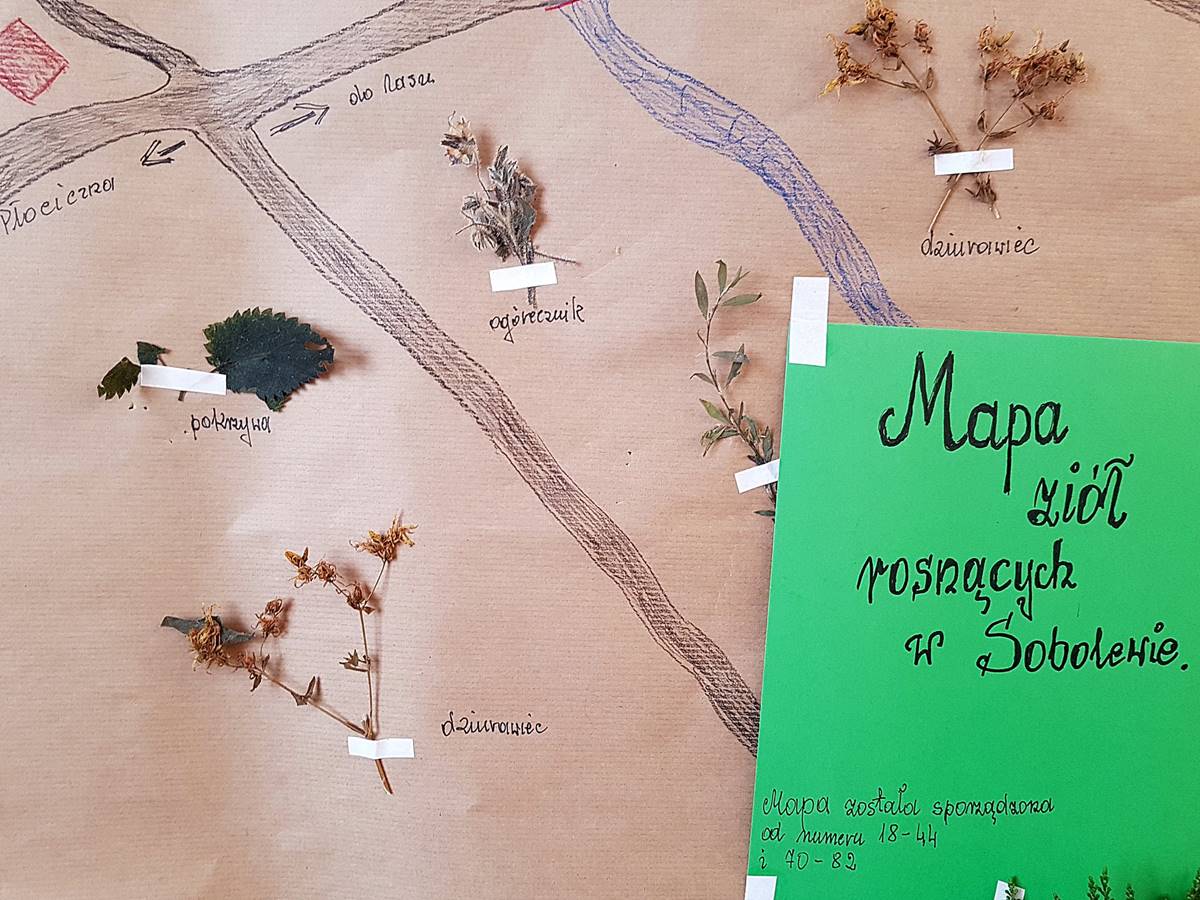 do lasu
Płociczna
dziurawiec
ogórecznik
pokrzywa
dziurawiec
Mapa
ziół
rosnących
w Sobolewie.
Mapa została sporządzona
od numeru 18-44
i 70-82